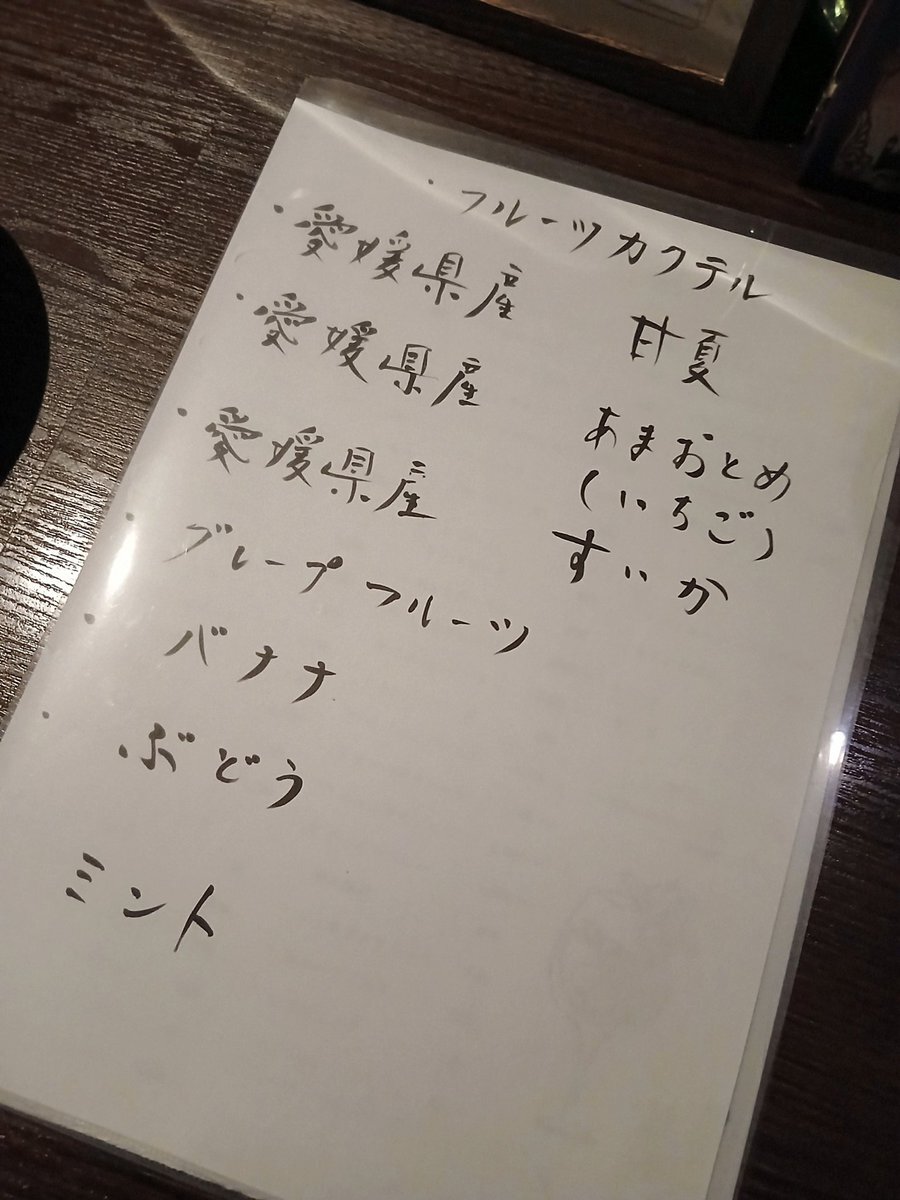 ・フルーツカクテル
・愛媛県産 甘夏
・愛媛県産 あまおとめ
(いちご)
・愛媛県産 すいか
・グレープフルーツ
・バナナ
・ぶどう
ミント